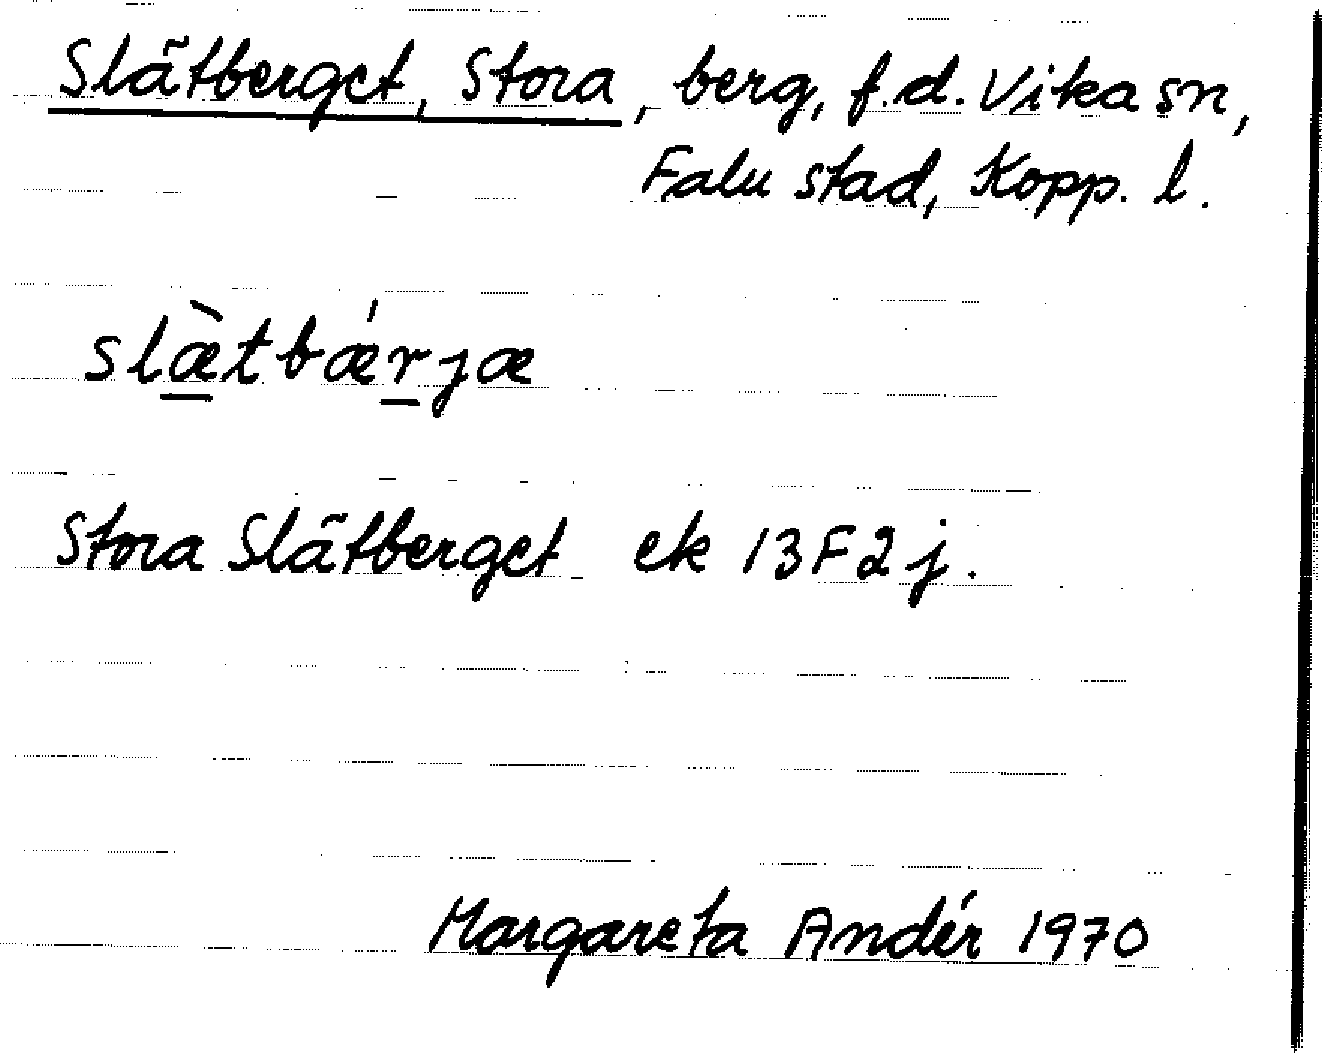 Slätberget, Stora, berg, f.d. Vika sn,
Falu stad, Kopp. l.
slæ̀tbǽrjæ
Stora Slätberget ek 13F2j.
Margareta Andér 1970